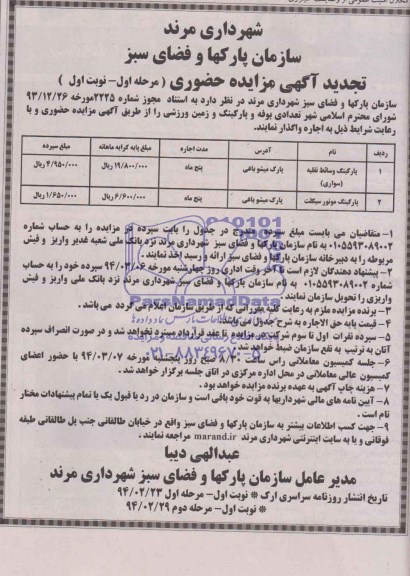 شهرداری مرند
سازمان پارکها و فضای سبز
تجدید آگهی مزایده حضوری ( مرحله اول- نوبت اول )
سازمان پارکها و فضای سبز شهرداری مرند در نظر دارد به استناد مجوز شماره ۲۲۲۵مورخه ۹۳/۱۲/۲۶
شورای محترم اسلامی شهر تعدادی بوفه و پارکینگ و زمین ورزشی را از طریق آگهی مزایده حضوری و با
رعایت شرایط ذیل به اجاره واگذار نمایند.
ردیف نام آدرس مدت اجاره مبلغ پایه کرایه ماهانه مبلغ سپرده
۱ پارکینگ وسائط نقلیه (سواری) پارک میشو باغی پنج ماه ۱۹/۸۰۰/۰۰۰ ریال ۴/۹۵۰/۰۰۰ ریال
۲ پارکینگ موتور سیکلت پارک میشو باغی پنج ماه ۶/۶۰۰/۰۰۰ ریال ۱/۶۵۰/۰۰۰ ریال
۱- متقاضیان می بایست مبلغ سپرده مندرج در جدول را بابت سپرده در مزایده را به حساب شماره
۰۱۰۵۵۹۳۰۸۹۰۰۲ به نام سازمان پارکها و فضای سبز شهرداری مرند نزد بانک ملی شعبه غدیر واریز و فیش
مربوطه را به دبیرخانه سازمان پارکها و فضای سبز ارائه و رسید اخذ نمایند.
۲- پیشنهاد دهندگان لازم است تا آخر وقت اداری روز چهارشنبه مورخه ۹۴/۰۳/۰۶ سپرده خود را به حساب
شماره ۰۱۰۵۵۹۳۰۸۹۰۰۲ به نام سازمان پارکها و فضای سبز شهرداری مرند نزد بانک ملی واریز و فیش
واریزی را تحویل سازمان نمایند.
۳- برنده مزایده ملزم به رعایت کلیه مقرراتی که از طریق سازمان اعلام می گردد می باشد.
۴- قیمت پایه حق الاجاره به شرح جدول می باشد.
۵- سپرده نفرات اول تا سوم شرکت در مزایده تا عقد قرارداد مسترد نخواهد شد و در صورت انصراف سپرده
آنان به ترتیب به نفع سازمان ضبط خواهد شد.
۶- جلسه کمیسیون معاملاتی راس ساعت ۸/۳۰ صبح روز پنجشنبه مورخه ۹۴/۰۳/۰۷ با حضور اعضای
کمیسیون عالی معاملاتی در محل اداره مرکزی در اتاق جلسه برگزار خواهد شد.
۷- هزینه چاپ آگهی به عهده برنده مزایده خواهد بود.
۸- آیین نامه های مالی شهرداریها به قوت خود باقی است و سازمان در رد یا قبول یک یا تمام پیشنهادات مختار
تام است.
۹- جهت کسب اطلاعات بیشتر به سازمان پارکها و فضای سبز واقع در خیابان طالقانی جنب پل طالقانی طبقه
فوقانی و یا به سایت اینترنتی شهرداری مرند marand.ir مراجعه نمایند.
عبدالهی دیبا
مدیر عامل سازمان پارکها و فضای سبز شهرداری مرند
تاریخ انتشار روزنامه سراسری ارک * نوبت اول- مرحله اول ۹۴/۰۲/۲۳
* نوبت اول- مرحله دوم ۹۴/۰۲/۲۹
ParsNamadData
۰۲۱-۸۸۳۴۹۶۷۰-۵